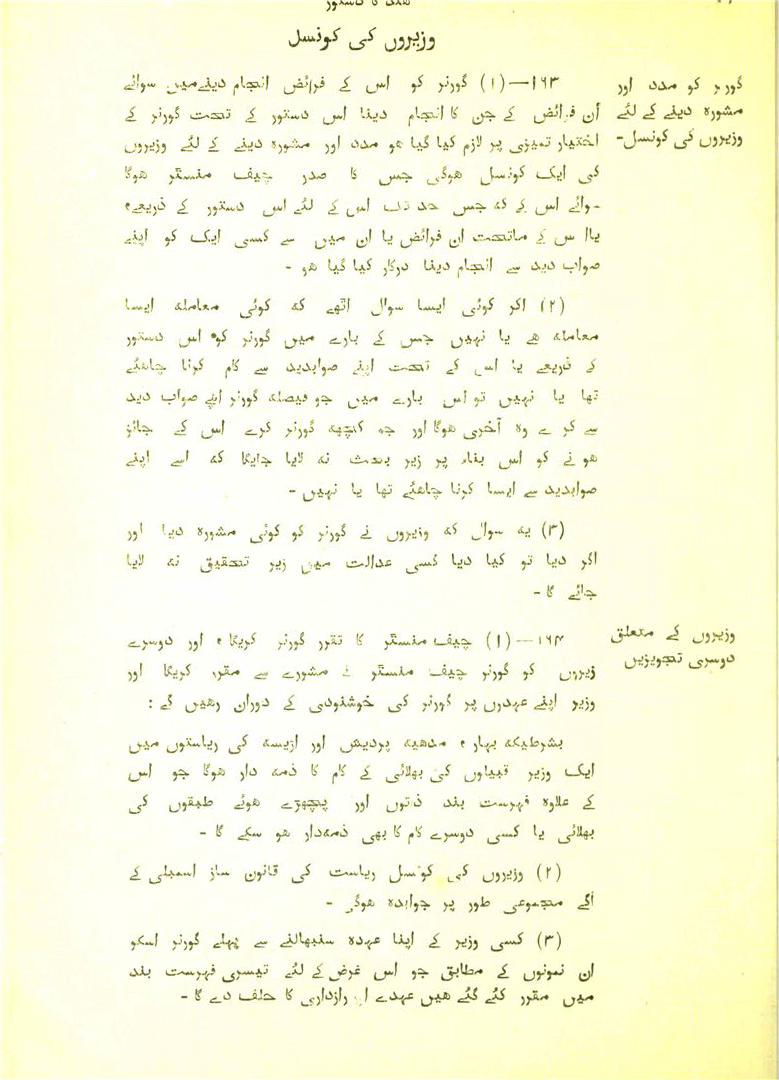 ھند کا دستور
وزیروں کی کونسل
گورنر کو مدد اور
مشورہ دینے کے لئے
وزیروں کی کونسل-
۱۶۳—(۱) گورنر کو اس کے فرائض انجام دینےمیں سوائے
اُن فرائض کے جن کا انجام دینا اس دستور کے تحت گورنر کے
اختیار تمیزی پر لازم کیا گیا ھو مدد اور مشورہ دینے کے لئے وزیروں
کی ایک کونسل ھوگی جس کا صدر چیف منسٹر ھوگا
سوائے اس کے کہ جس حد تک اس کے لئے اس دستور کے ذریعے،
یااس کے ماتحت ان فرائض یا ان میں سے کسی ایک کو اپنے
صواب دید سے انجام دینا درکار کیا گیا ھو -
(۲) اگر کوئی ایسا سوال اٹھے کہ کوئی معاملہ ایسا
معاملہ ھے یا نہیں جس کے بارے میں گورنر کو اس دستور
کے ذریعے یا اس کے تحت اپنے صوابدید سے کام کرنا چاھئے
تھا یا نہیں تو اس بارے میں جو فیصلہ گورنر اپنے صواب دید
سے کرے وہ آخری ھوگا اور جو کچھ گورنر کرے اس کے جائز
ھونے کو اس بناء پر زیر بحث نہ لایا جایگا کہ اسے اپنے
صوابدید سے ایسا کرنا چاھئے تھا یا نہیں -
(۳) یہ سوال کہ وزیروں نے گورنر کو کوئی مشورہ دیا اور
اگر دیا تو کیا دیا کسی عدالت میں زیر تحقیق نہ لایا
جائے گا -
وزیروں کے متعلق
دوسری تجویزیں
۱۶۴—(۱) چیف منسٹر کا تقرر گورنر کریگا، اور دوسرے
وزیروں کو گورنر چیف منسٹر کے مشورے سے مقرر کریگا اور
وزیر اپنے عہدوں پر گورنر کی خوشنودی کے دوران رھیں گے :
بشرطیکہ بہار، مدھیہ پردیش اور اڑیسہ کی ریاستوں میں
ایک وزیر قبیلوں کی بھلائی کے کام کا ذمہ دار ھوگا جو اس
کے علاوہ فہرست بند ذتوں اور پچھڑے ھوئے طبقوں کی
بھلائی یا کسی دوسرے کام کا بھی ذمہدار ھو سکے گا -
(۲) وزیروں کی کونسل ریاست کی قانون ساز اسمبلی کے
آگے مجموعی طور پر جوابدہ ھوگی -
(۳) کسی وزیر کے اپنا عہدہ سنبھالنے سے پہلے گورنر اسکو
ان نمونوں کے مطابق جو اس غرض کے لئے تیسری فہرست بند
میں مقرر کئے گئے ھیں عہدے اور رازداری کا حلف دے گا -